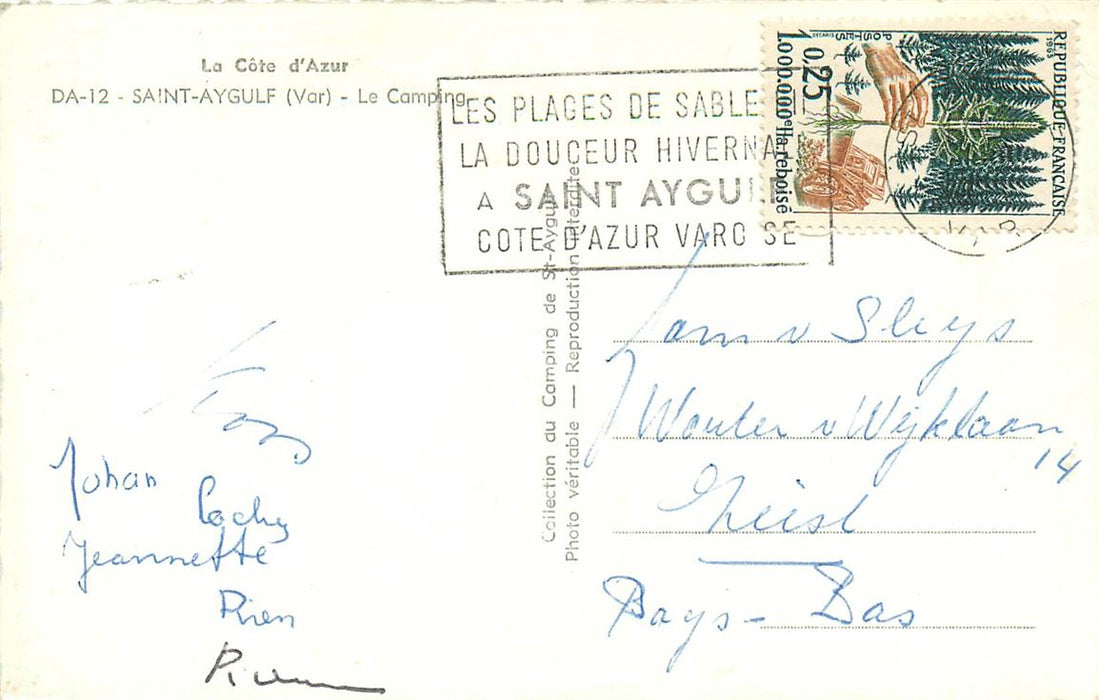 La Côte d'Azur
DA-12 - SAINT-AYGULF (Var) - Le Camping
LES PLAGES DE SABLE
LA DOUCEUR HIVERNA
A SAINT AYGUL
COTE D'AZUR VARO SE
REPUBLIQUE FRANÇAISE
1965
POSTES
0,25
1.000.000e Ha reboisé
DECARIS
VAR
Collection du Camping de St-Aygulf
Photo véritable — Reproduction interdite
Johan
Cocky
Jeannette
Rien
Fam v Sluys
Wouter v Wijklaan
14
Zeist
Pays-Bas